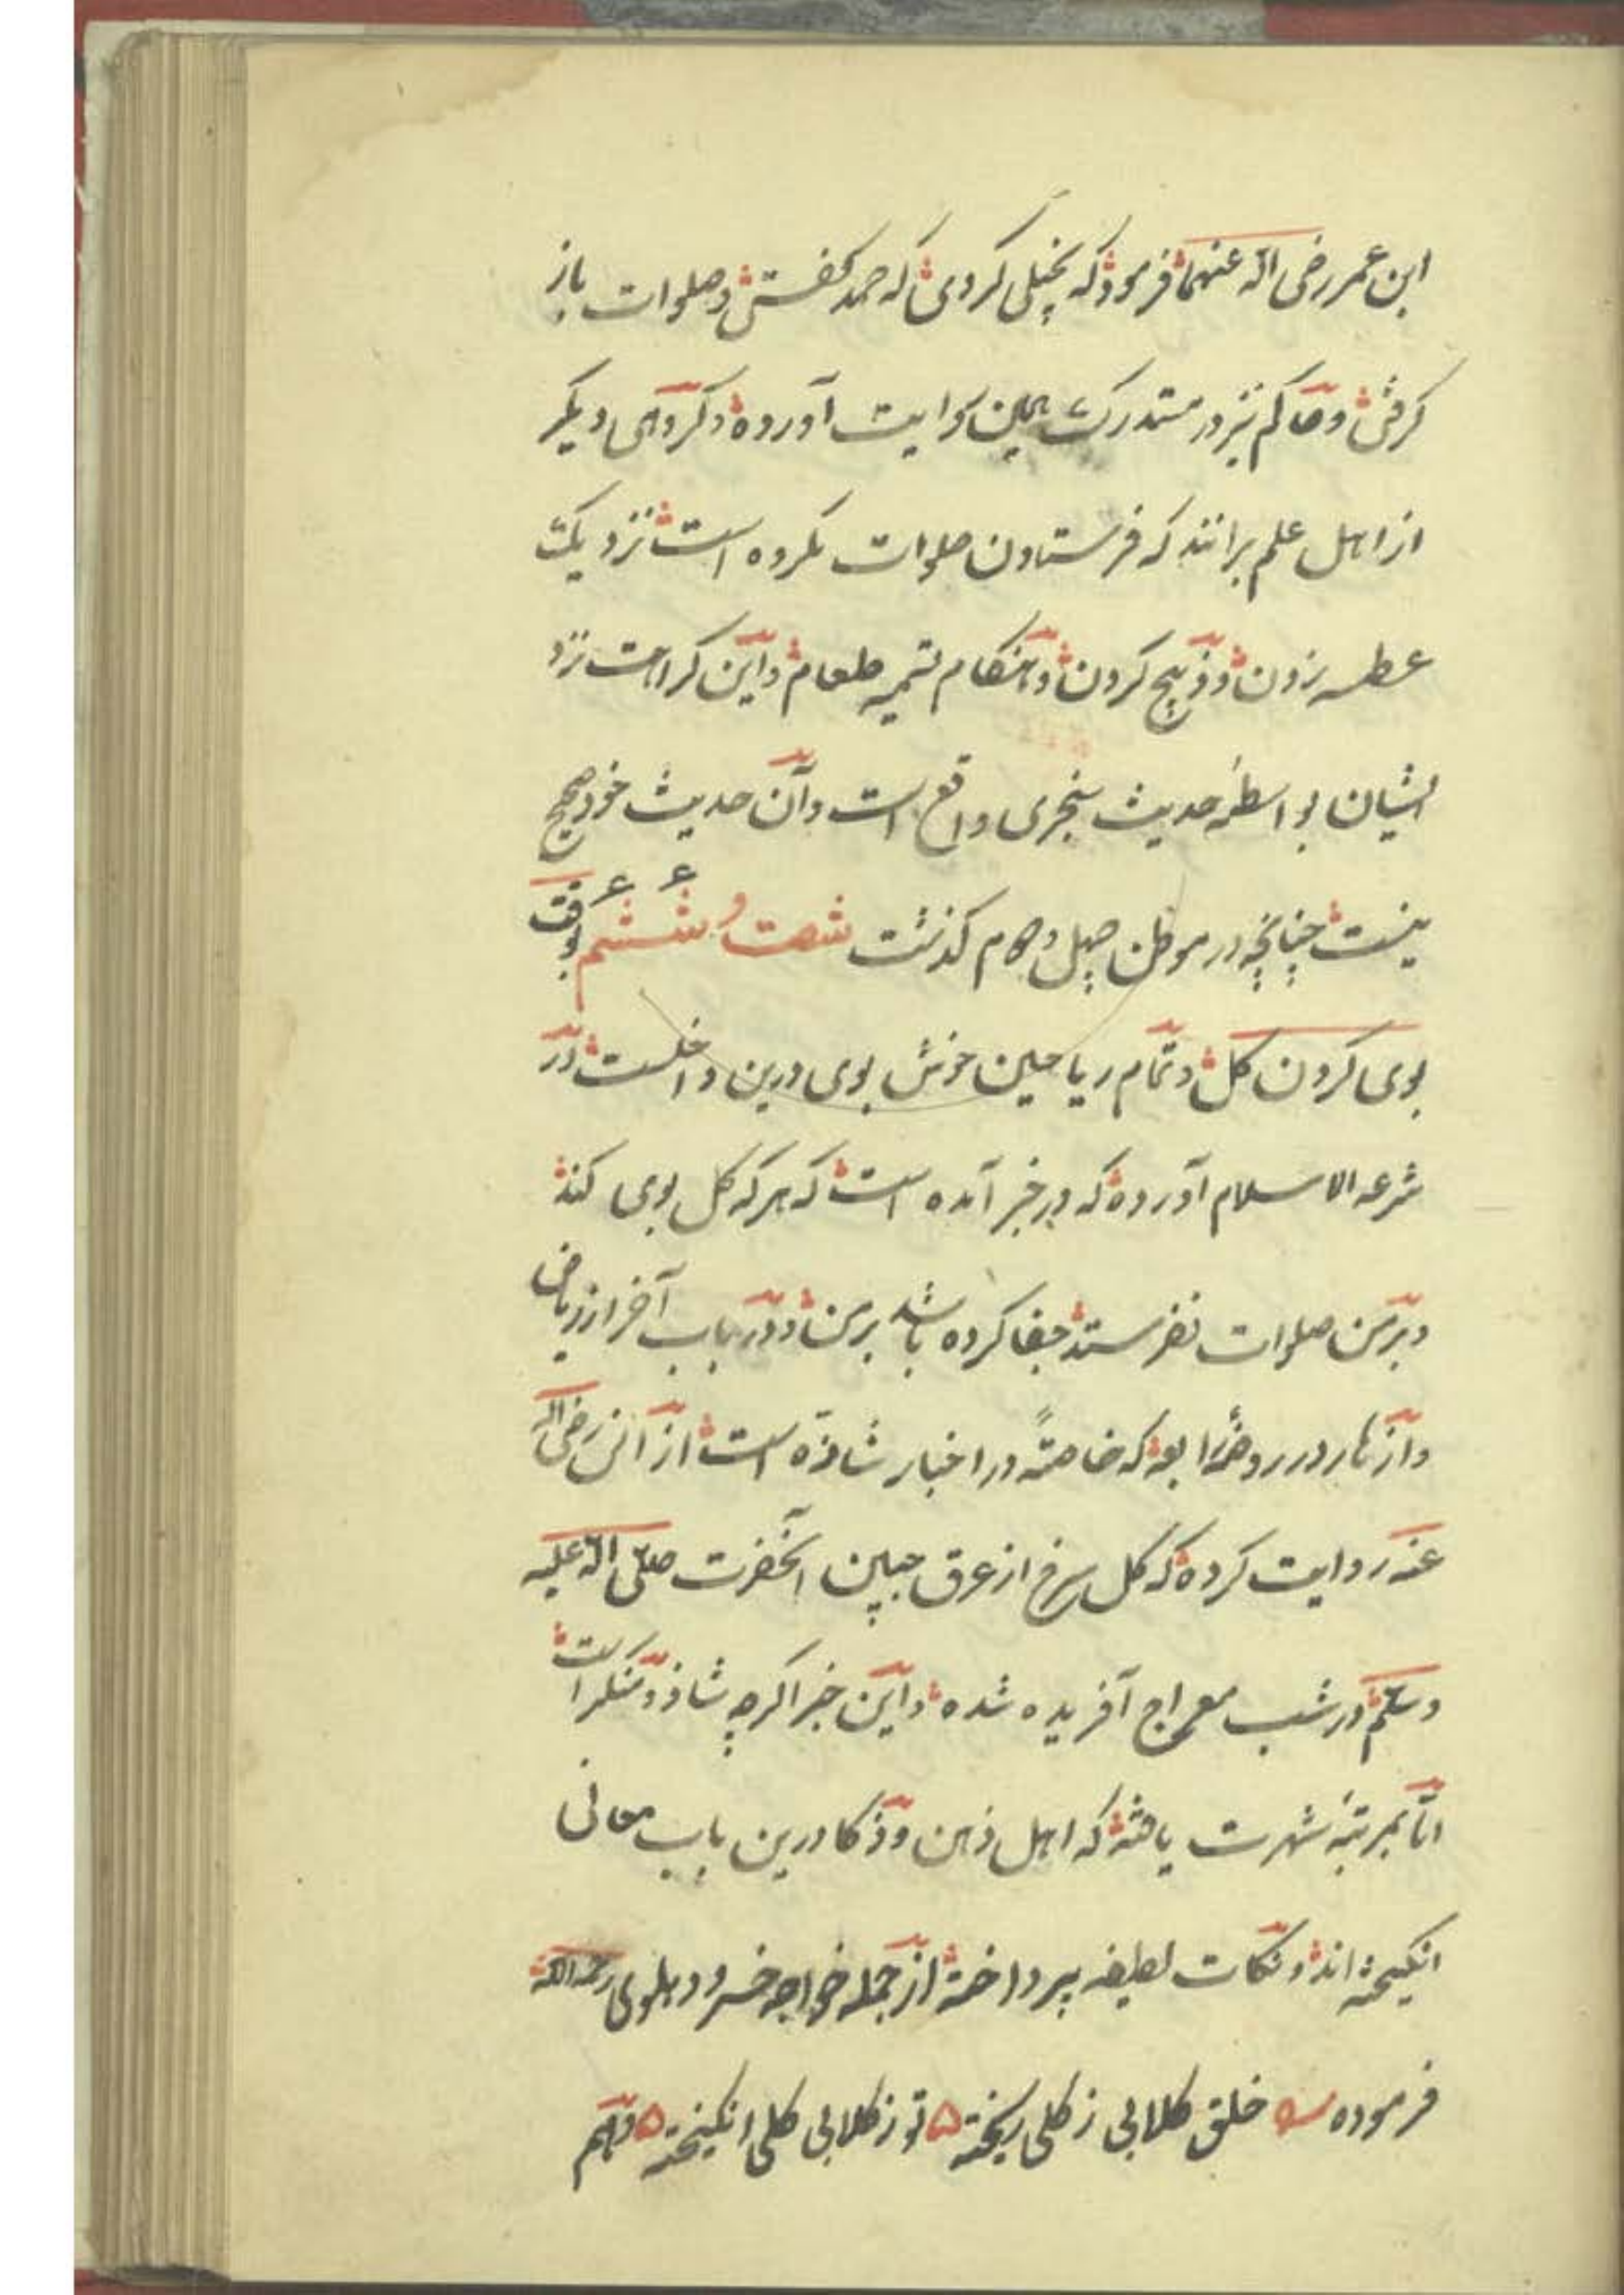 ابن عمر رضی الله عنهما فرمود که بخیلی کردی که حمد گفتی و صلوات باز
گرفتی و حاکم نیز در مستدرک همین روایت آورده و گروهی دیگر
از اهل علم برانند که فرستادن صلوات مکروه است نزدیک
عطسه زدن و ذبح کردن و هنگام تسمیه طعام و این کراهت نزد
ایشان بواسطه حدیث سنجری واقع است و آن حدیث خود صحیح
نیست چنانچه در موطن چهل و گذشت شصت و ششم بوقت
بوی کردن گل و تمام ریاحین خوش بوی درین داخلست در
شرعه الاسلام آورده که در خبر آمده است که هر که گل بوی کند
و بر من صلوات نفرستد جفا کرده باشد بر من و در باب آخر از ریاض
و ازهار در روضه رابعه که خاصةً در اخبار شاذّه است از انس رضی الله
عنه روایت کرده که گل سرخ از عرق جبین آنحضرت صلّی الله علیه
وسلّم در شب معراج آفریده شده و این خبر اگرچه شاذ و منکر است
امّا بمرتبهٔ شهرت یافته که اهل ذهن و ذکا درین باب معانی
انگیخته اند و نکات لطیفه پرداخته از جمله خواجه خسرو دهلوی رحمه الله
فرموده خلق گلابی ز گلی ریخته ۵ تو ز گلابی گلی انگیخته ۵ و هم